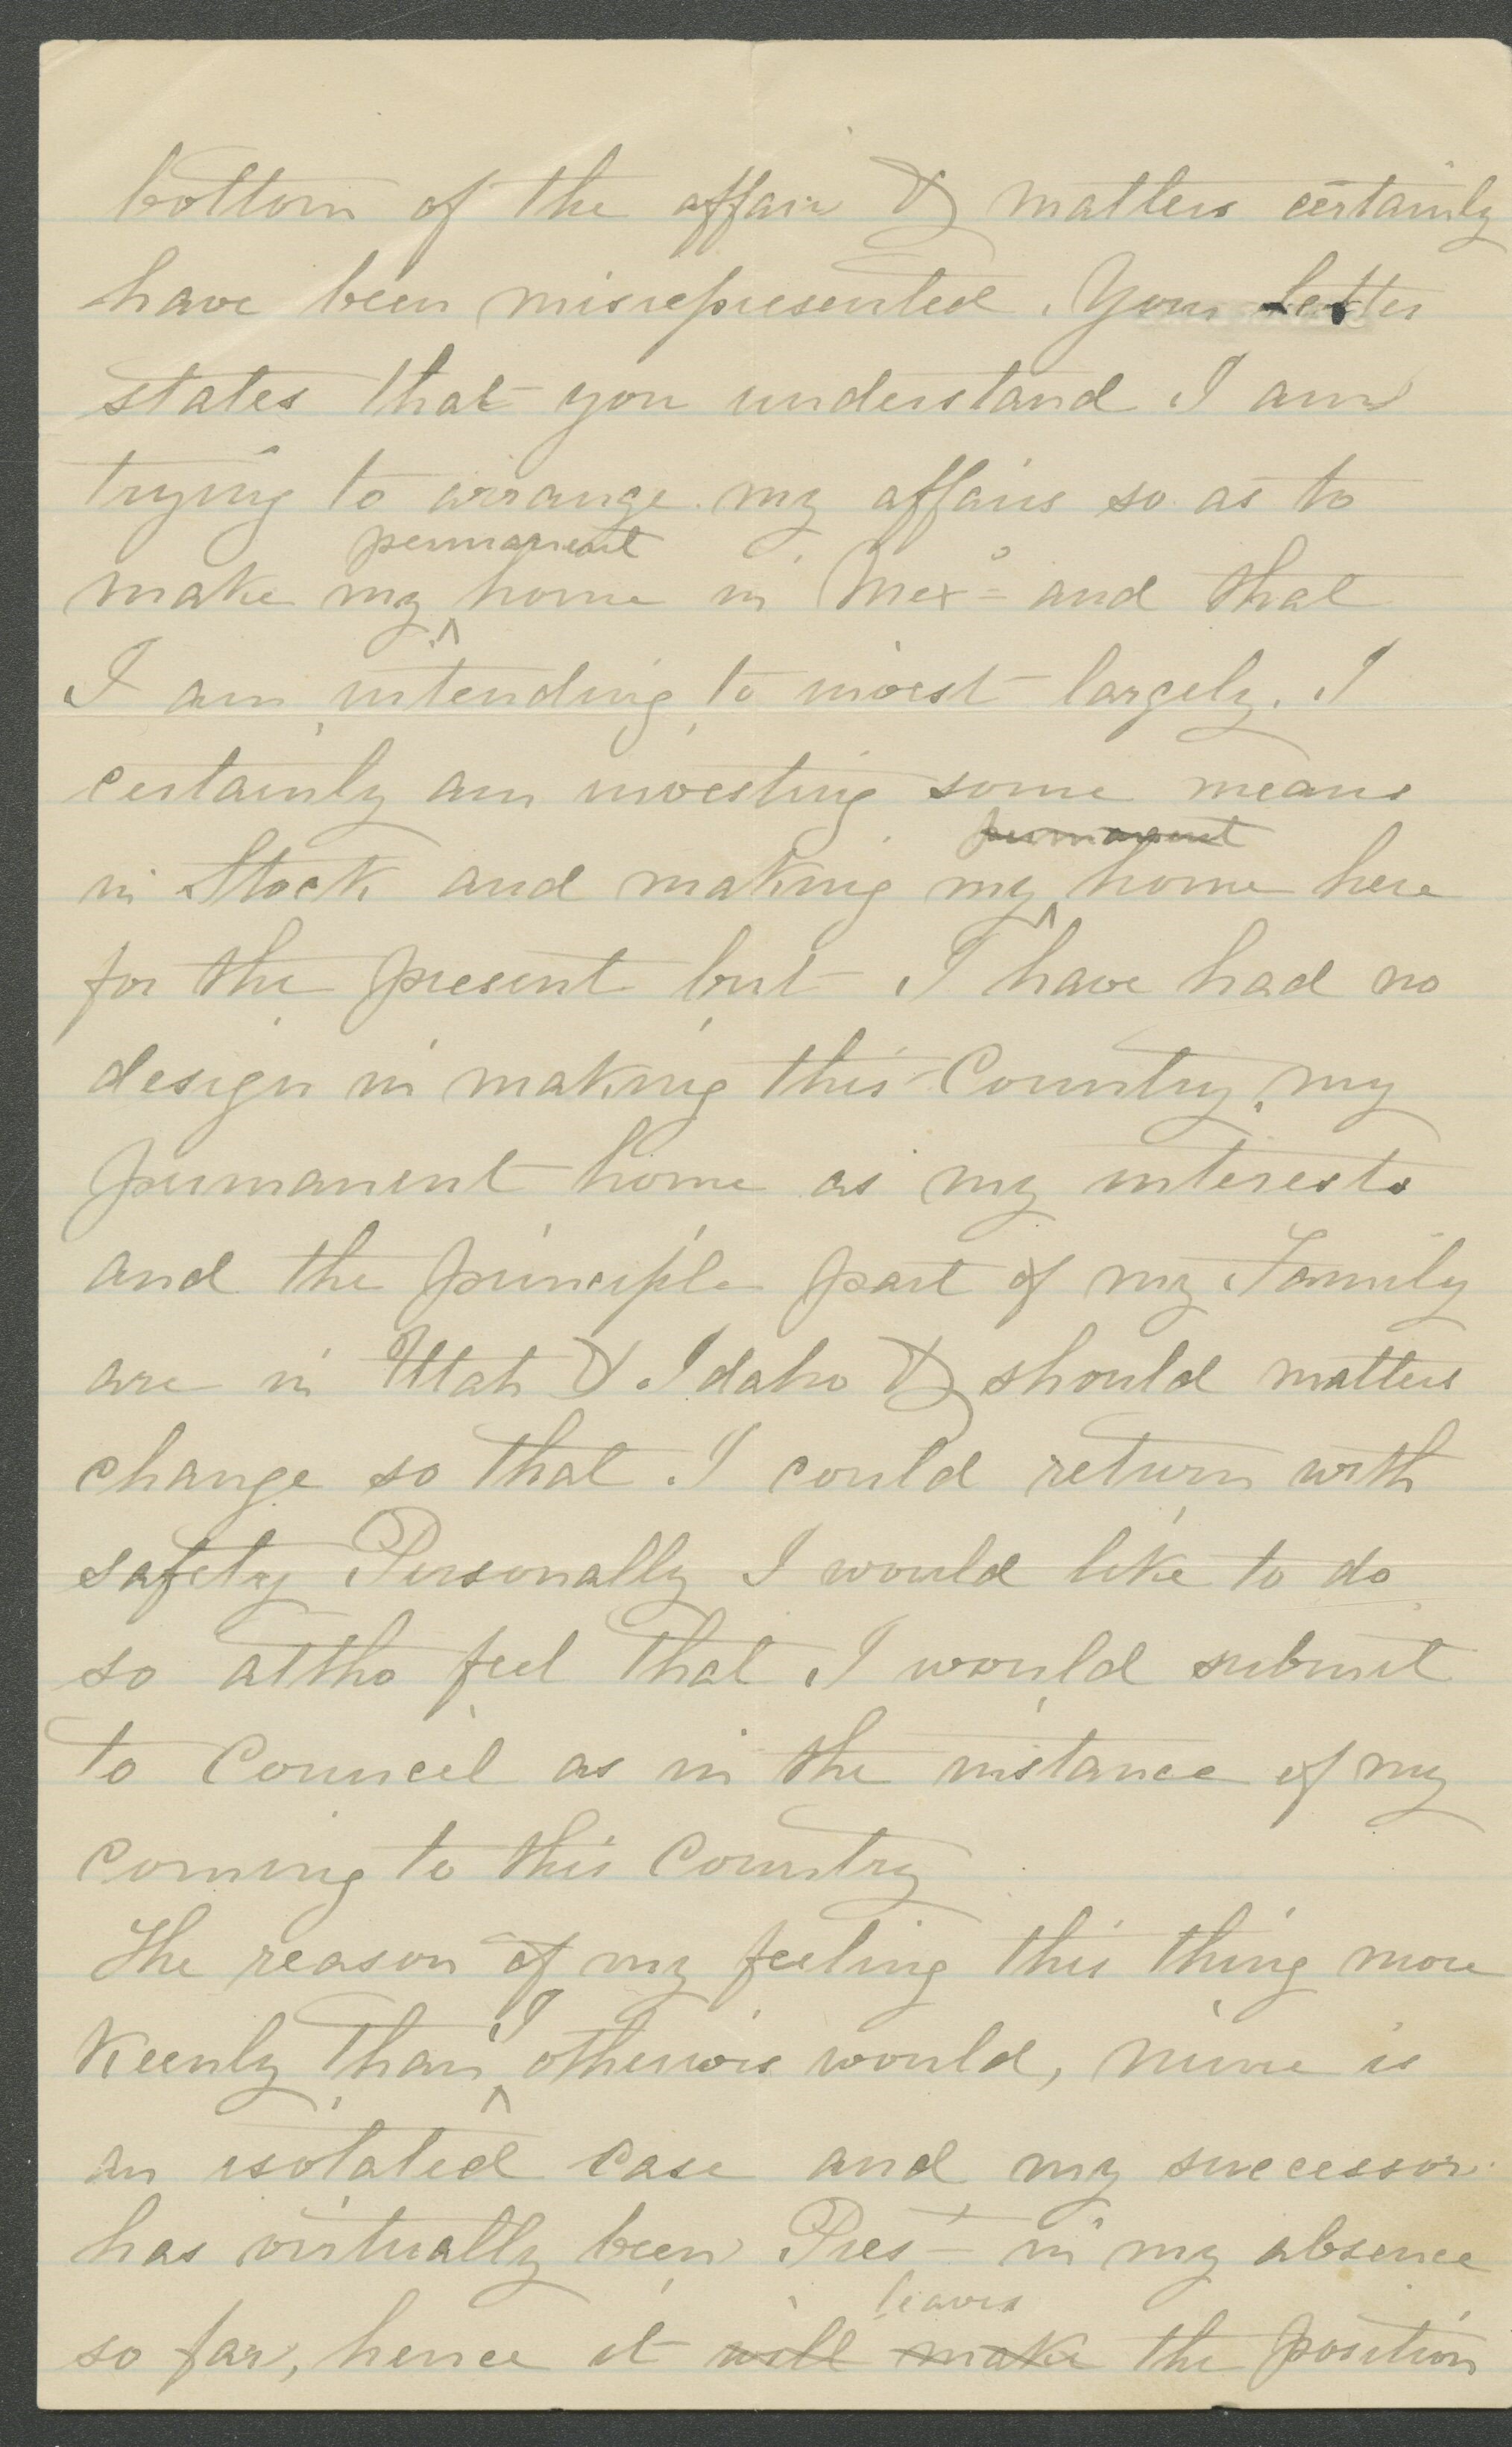 bottom of the affair & matters certainly
have been misrepresented. Your letter
states that you understand I am
trying to arrange my affairs so as to
permanent
make my ^ home in Mexº and that
I am intending to invest largely. I
certainly am investing some means
permanent
in Stock and making my ^ home here
for the present but I have had no
design in making this Country my
permanent home as my interests
and the principle part of my Family
are in Utah & Idaho & should matters
change so that I could return with
safety Personally I would like to do
so altho feel that I would submit
to Council as in the instance of my
coming to this Country
The reason of my feeling this thing more
I
Keenly than ^ otherwis would, mine is
an isolated case and my successor
has virtually been Pres in my absence
leaves
so far, hence it will make the position